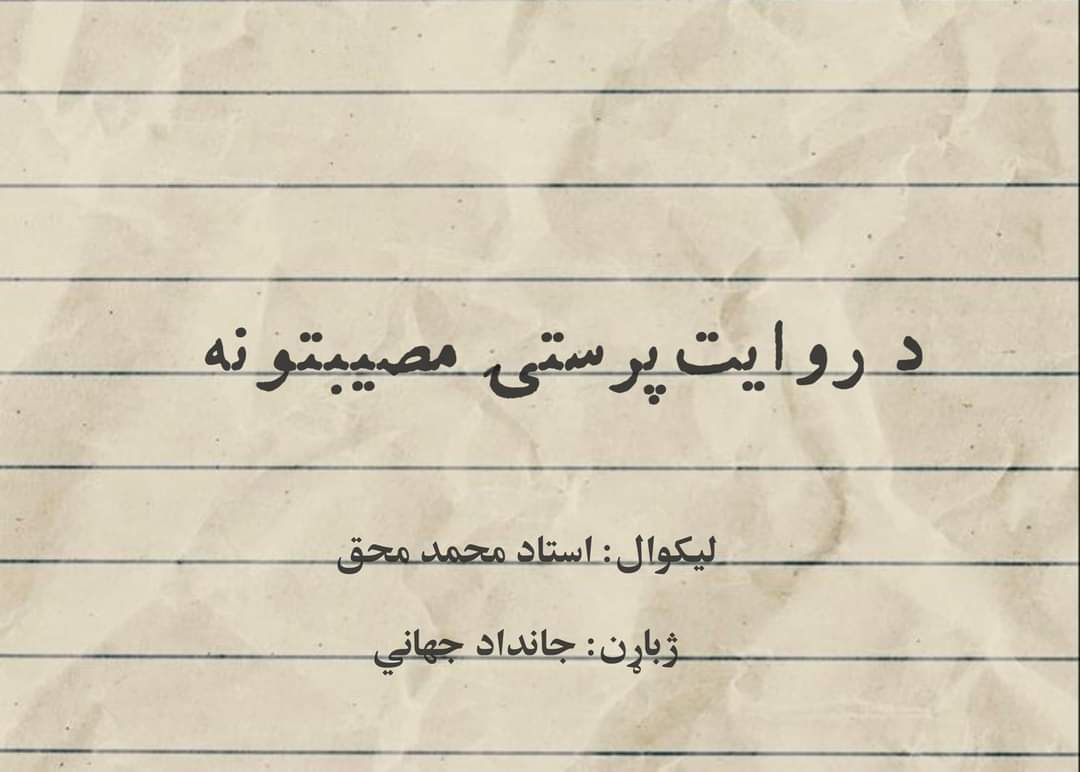 د روایت‌پرستۍ مصیبتونه
لیکوال: استاد محمد محق
ژباړن: جانداد جهاني